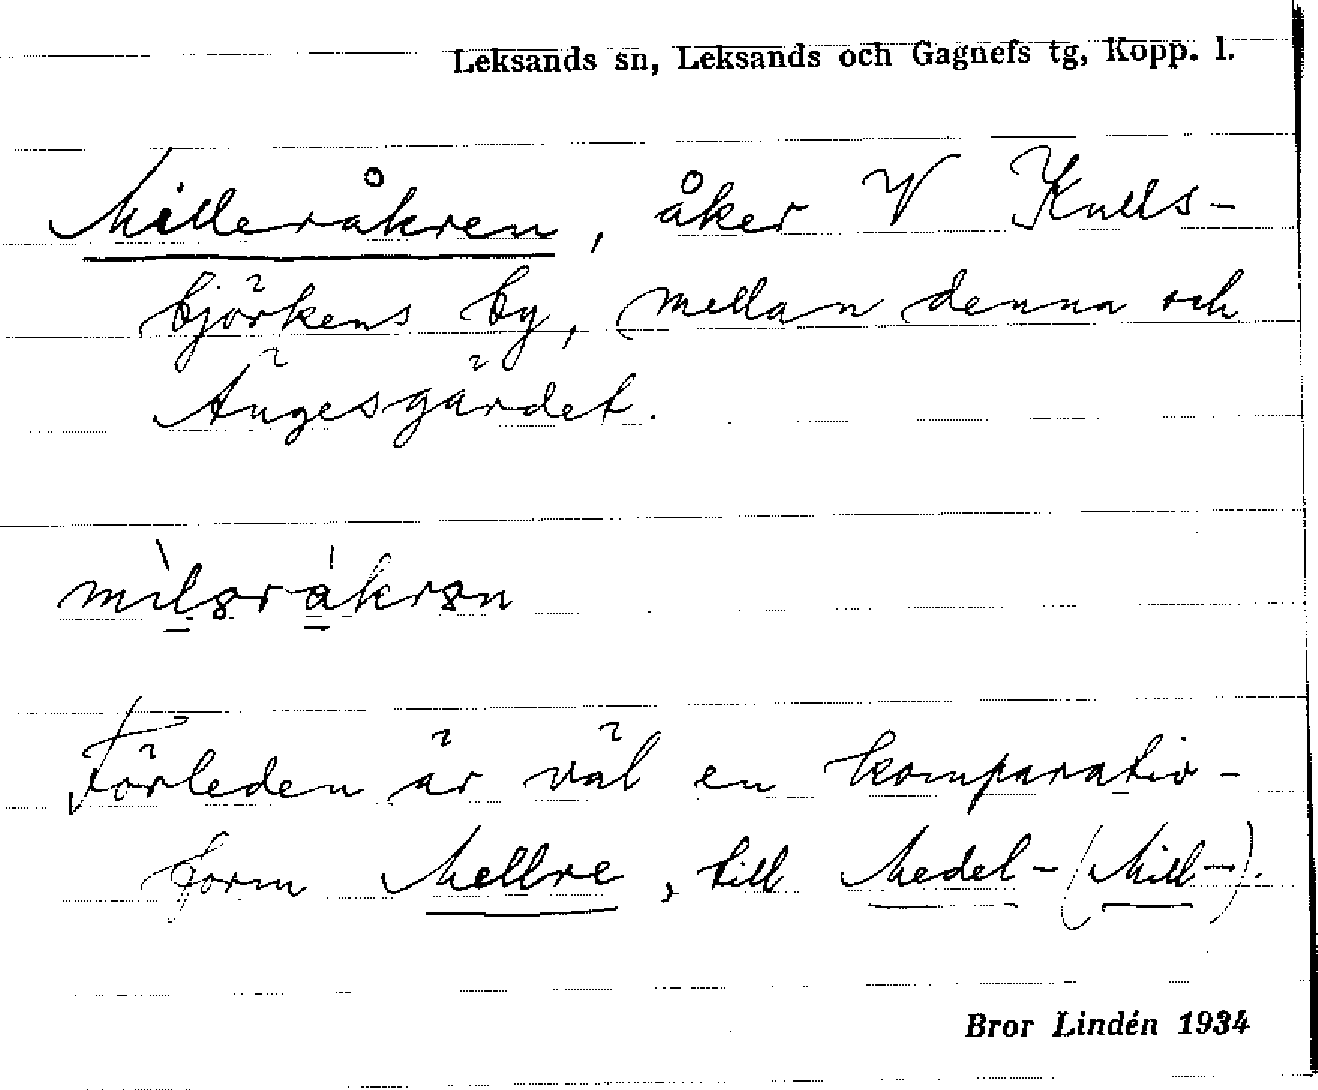 Leksands sn, Leksands och Gagnefs tg, Kopp. l.
Milleråkren, åker V Kulls-
björkens by, mellan denna och
Ängesgärdet.
mìlərákrən
Förleden är väl en komparativ-
form Mellre, till Medel- (Mill-).
Bror Lindén 1934